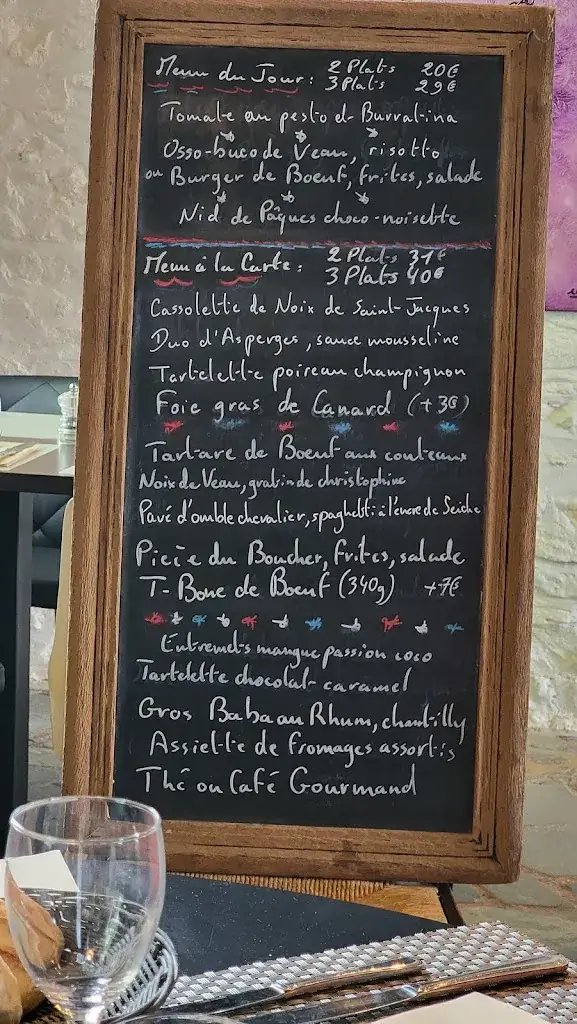 Menu du Jour : 2 Plats 20€
3 Plats 29€
Tomate au pesto et Burratina
Osso-buco de Veau, risotto
ou Burger de Boeuf, frites, salade
Nid de Pâques choco-noisette
Menu à la Carte : 2 Plats 31€
3 Plats 40€
Cassolette de Noix de Saint-Jacques
Duo d'Asperges, sauce mousseline
Tartelette poireau champignon
Foie gras de Canard (+3€)
Tartare de Boeuf aux couteaux
Noix de Veau, gratin de christophine
Pavé d'omble chevalier, spaghetti à l'encre de Seiche
Pièce du Boucher, frites, salade
T-Bone de Boeuf (340g) +7€
Entremets mangue passion coco
Tartelette chocolat caramel
Gros Baba au Rhum, chantilly
Assiette de fromages assortis
Thé ou Café Gourmand